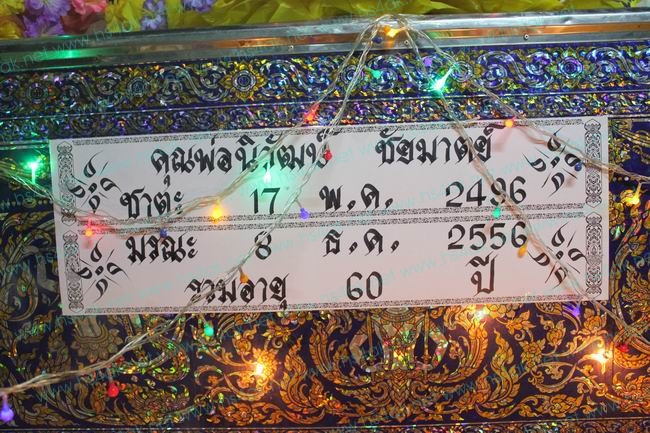 คุณพ่อนิวัฒน์ ชัยมาตย์
ชาตะ 17 พ.ค. 2496
มรณะ 8 ธ.ค. 2556
รวมอายุ 60 ปี